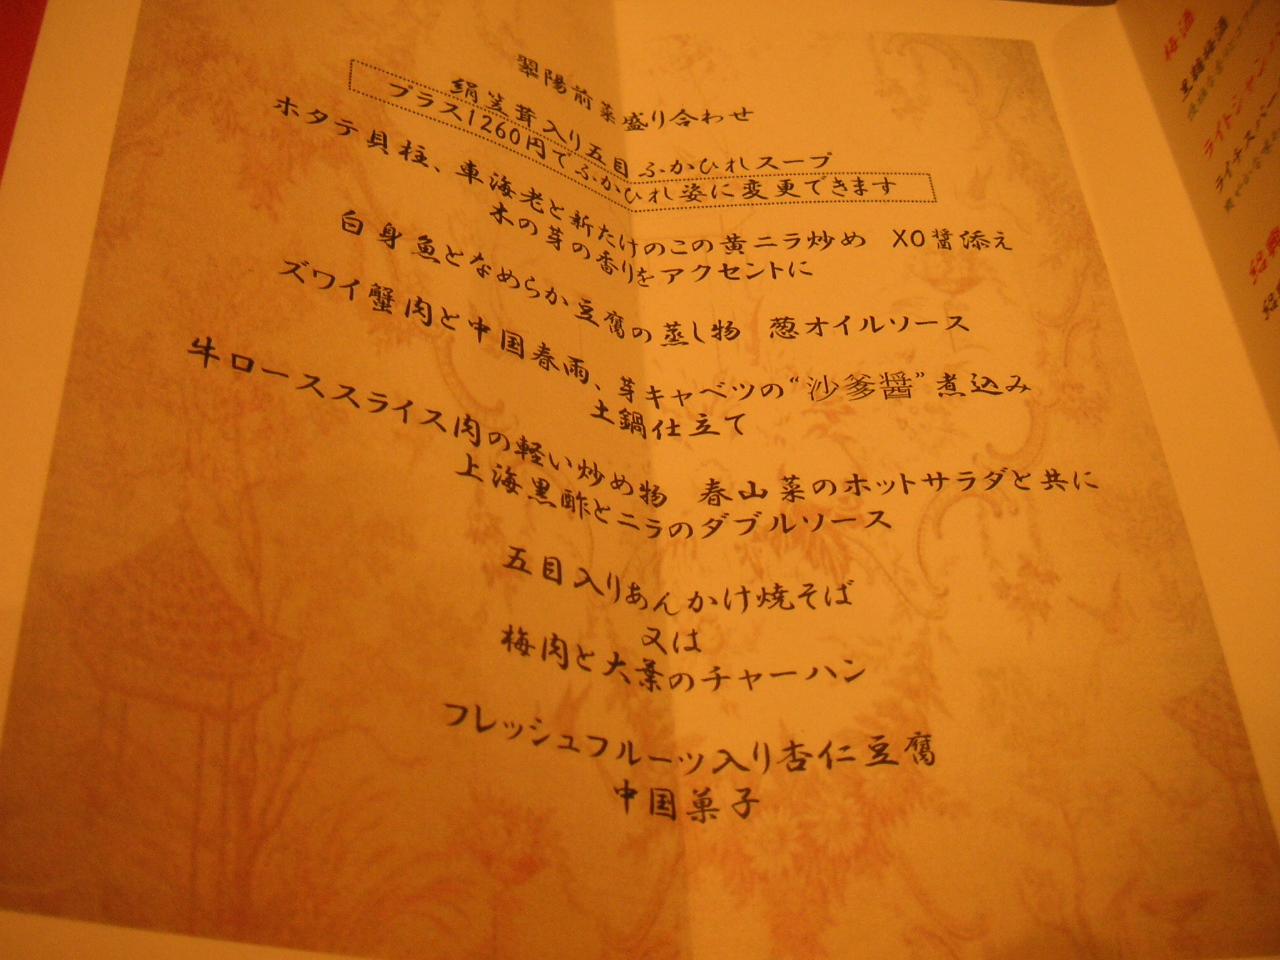 翠陽前菜盛り合わせ
絹笠茸入り五目ふかひれスープ
プラス1260円でふかひれ姿に変更できます
ホタテ貝柱、車海老と新たけのこの黄ニラ炒め XO醤添え
木の芽の香りをアクセントに
白身魚となめらか豆腐の蒸し物 葱オイルソース
ズワイ蟹肉と中国春雨、芽キャベツの“沙爹醤”煮込み
土鍋仕立て
牛ローススライス肉の軽い炒め物 春山菜のホットサラダと共に
上海黒酢とニラのダブルソース
五目入りあんかけ焼そば
又は
梅肉と大葉のチャーハン
フレッシュフルーツ入り杏仁豆腐
中国菓子
梅酒
梅酒